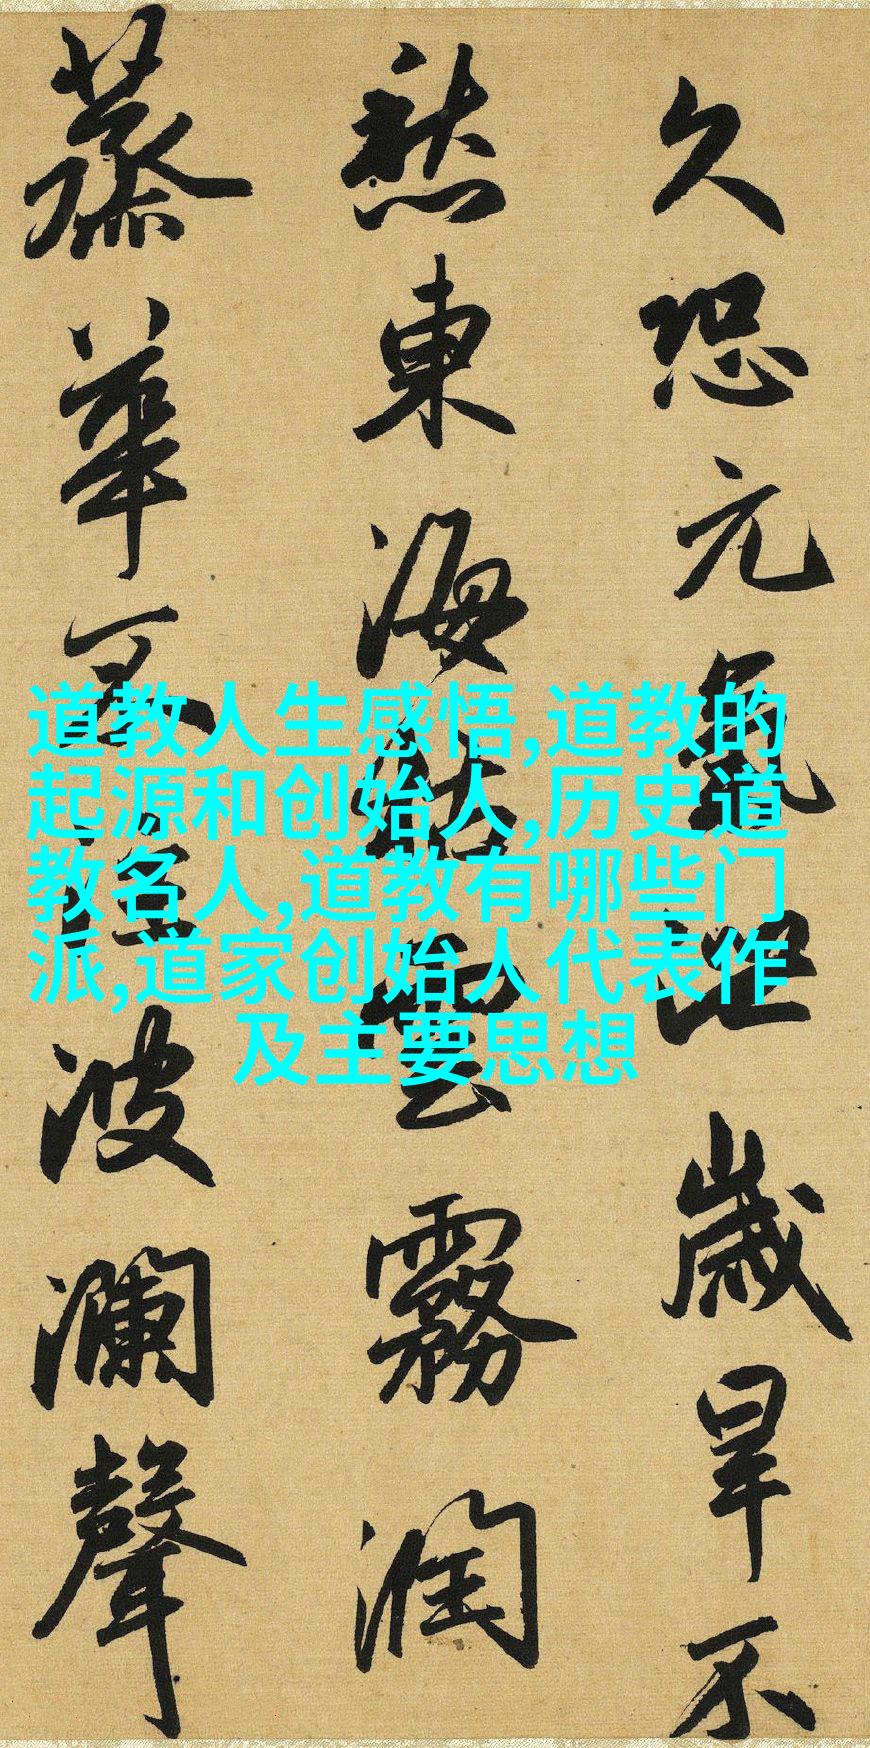 久恐元氣泄歲旱不
愁東海枯雲霧潤
蒸華不注波瀾聲
道教人生感悟,道教的
起源和创始人,历史道
教名人,道教有哪些门
派,道家创始人代表作
及主要思想